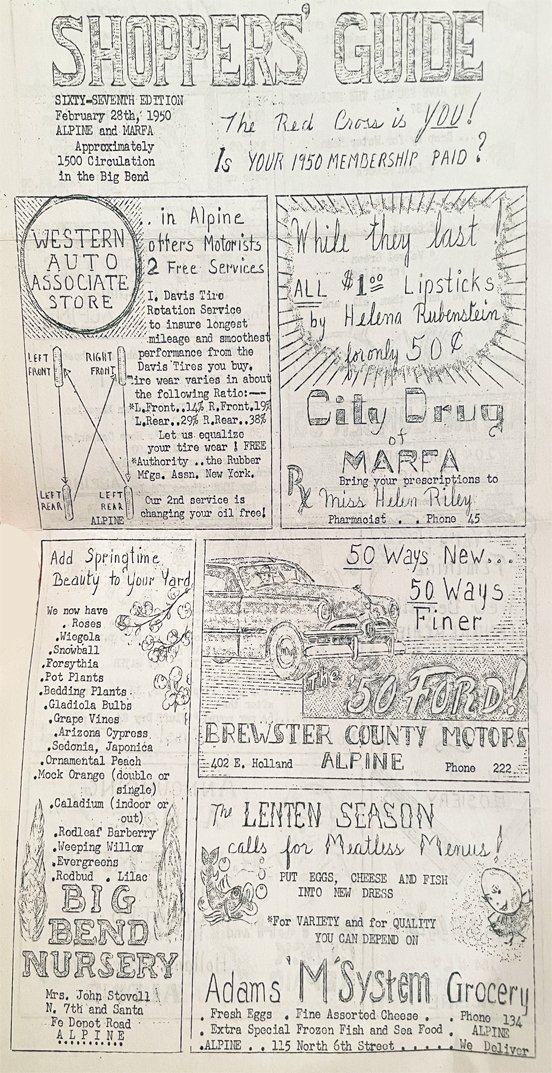 SHOPPERS' GUIDE
SIXTY-SEVENTH EDITION
February 28th, 1950
ALPINE and MARFA
Approximately
1500 Circulation
in the Big Bend
The Red Cross is YOU!
Is YOUR 1950 MEMBERSHIP PAID?
WESTERN
AUTO
ASSOCIATE
STORE
. in Alpine
offers Motorists
2 Free Services
I. Davis Tire
Rotation Service
to insure longest
mileage and smoothest
performance from the
Davis Tires you buy.
Tire wear varies in about
the following Ratio:---
*L.Front..14% R.Front.19%
L.Rear..29% R.Rear..38%
Let us equalize
your tire wear ! FREE
*Authority ..the Rubber
Mfgs. Assn. New York.
Our 2nd service is
changing your oil free!
LEFT
FRONT
RIGHT
FRONT
LEFT
REAR
LEFT
REAR
ALPINE
While they last!
ALL $1.00 Lipsticks
by Helena Rubenstein
for only 50¢
City Drug
of
MARFA
Bring your prescriptions to
Rx Miss Helen Riley
Pharmacist . . Phone 45
Add Springtime
Beauty to Your Yard
We now have
. Roses
.Wiegela
.Snowball
.Forsythia
.Pot Plants
.Bedding Plants
.Gladiola Bulbs
.Grape Vines
.Arizona Cypress
.Sedonia, Japonica
.Ornamental Peach
.Mock Orange (double or
single)
.Caladium (indoor or
out)
.Rodleaf Barberry
.Weeping Willow
.Evergreens
.Rodbud . Lilac
BIG
BEND
NURSERY
Mrs. John Stovell
N. 7th and Santa
Fe Depot Road
ALPINE
50 Ways New...
50 Ways
Finer
The '50 FORD!
BREWSTER COUNTY MOTORS
402 E. Holland ALPINE Phone 222
The LENTEN SEASON
calls for Meatless Menus!
PUT EGGS, CHEESE AND FISH
INTO NEW DRESS
*For VARIETY and for QUALITY
YOU CAN DEPEND ON
Adams 'M' System Grocery
. Fresh Eggs . Fine Assorted Cheese . . Phone 134
. Extra Special Frozen Fish and Sea Food . ALPINE
.ALPINE . . 115 North 6th Street . . . . . We Deliver